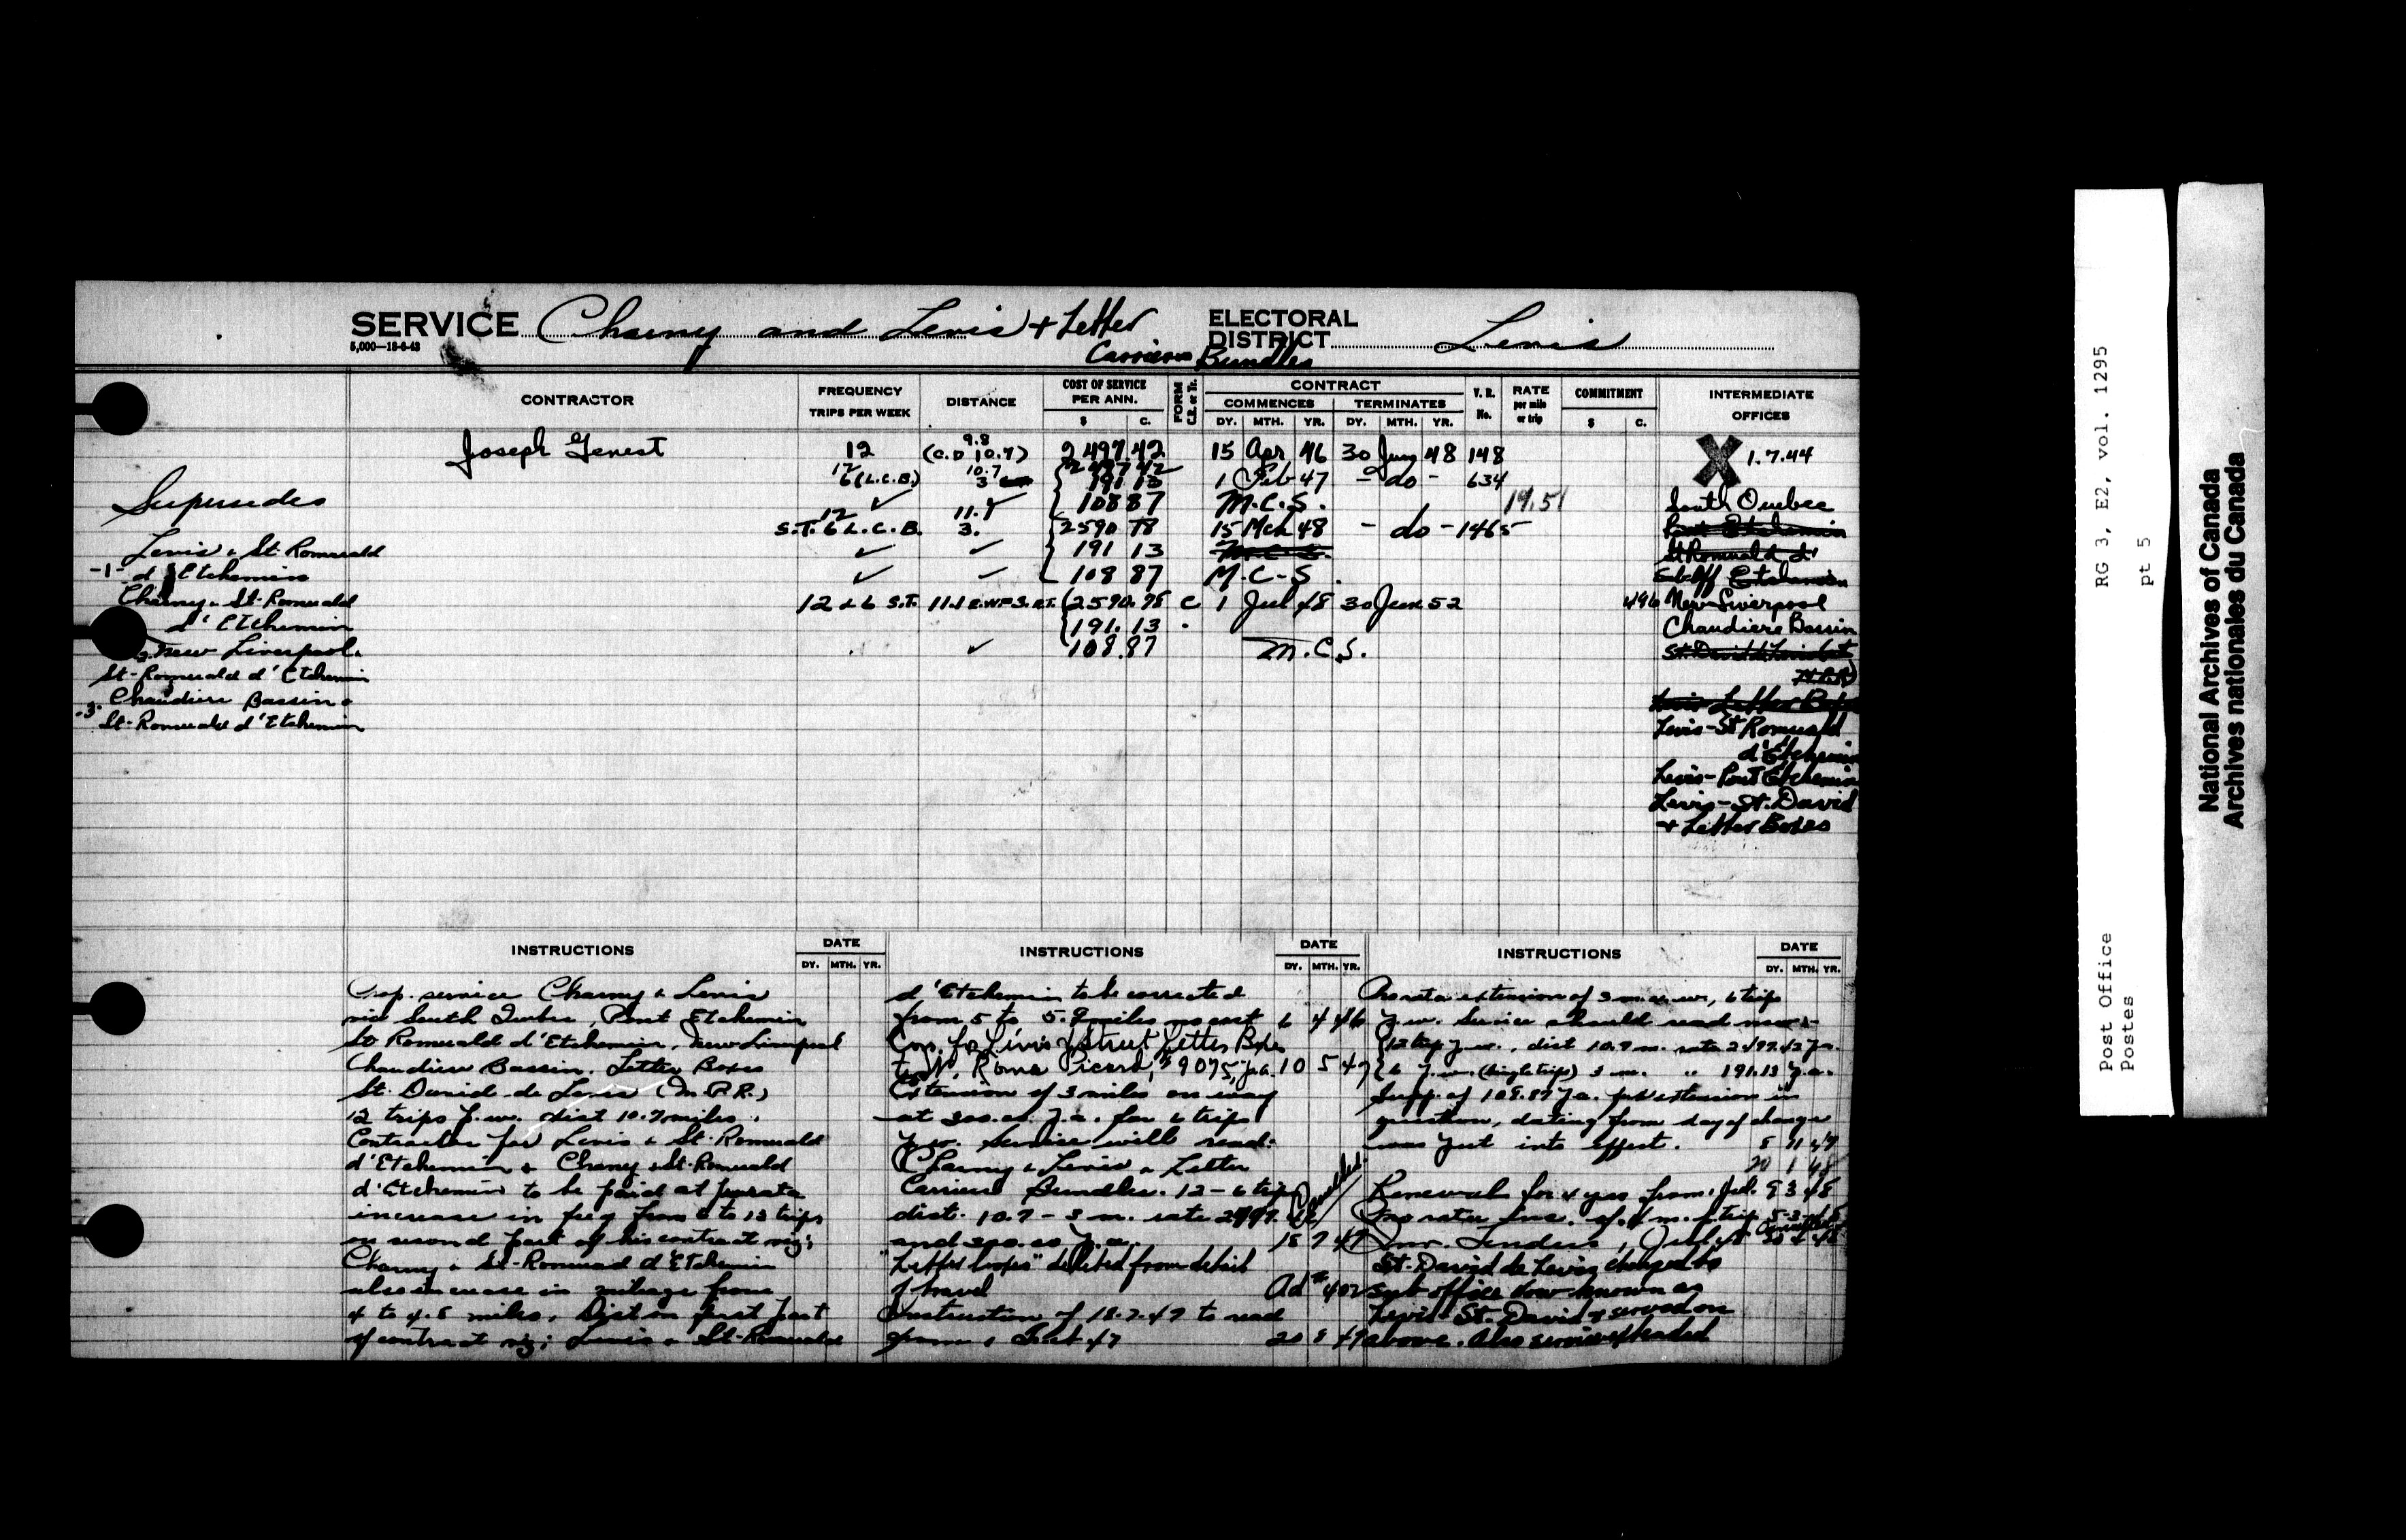 SERVICE Charny and Levis & Letter Carriers Bundles
5,000—18-6-43
ELECTORAL DISTRICT Levis
CONTRACTOR
FREQUENCY TRIPS PER WEEK
DISTANCE
COST OF SERVICE PER ANN. $ C.
FORM
CONTRACT
COMMENCES DY. MTH. YR.
TERMINATES DY. MTH. YR.
V. R. No.
RATE per mile or trip
COMMITMENT $ C.
INTERMEDIATE OFFICES
Joseph Genest 12 9.8 (C.D 10.7) 2497.42 15 Apr 46 30 June 48 148
X 1.7.44
12 6 (L.C.B.) 10.7 3 { 2497 42 191 13 1 Feb 47 - do - 634
✓ ✓ 108 87 M.C.S. 19.51
12 S.T. 6 L.C.B. 11.1 3. { 2590 78 15 Mch 48 - do - 1465
✓ ✓ 191 13
✓ ✓ 108 87 M.C.S.
12 & 6 S.T. { 2590.78 C 1 Jul 48 30 Jun 52 496
191.13
✓ 108.87 M.C.S.
Supersedes
Levis & St. Romuald
-1- d'Etchemin
Charny & St-Romuald
d'Etchemin
New Liverpool &
St-Romuald d'Etchemin
Chaudiere Bassin &
-3- St-Romuald d'Etchemin
South Quebec
Pont Etchemin
St Romuald d'
Sub Off Etchemin
New Liverpool
Chaudiere Bassin
Levis-St Romuald
d'Etchemin
Levis-Pont Etchemin
Levis-St. David
& Letter Boxes
INSTRUCTIONS
DATE DY. MTH. YR.
Prop. service Charny & Levis
via South Quebec, Pont Etchemin
St Romuald d'Etchemin, New Liverpool
Chaudiere Bassin, Letter Boxes
St. David de Levis (M.P.R.)
12 trips p.w. dist 10.7 miles.
Contractor for Levis & St-Romuald
d'Etchemin & Charny & St-Romuald
d'Etchemin to be paid at prorata
increase in freq from 6 to 12 trips
on second part of his contract viz;
Charny & St-Romuald d'Etchemin
also increase in mileage from
4 to 4.8 miles. Dist on first part
of contract viz; Levis & St-Romuald
INSTRUCTIONS
DATE DY. MTH. YR.
d'Etchemin to be corrected
from 5 to 5.9 miles no cost 6 4 46
Con. for Levis Street Letter Boxes
to W. Rome Picard, $90.75 p.a. 10 5 47
Extension of 3 miles one way
at 300.00 p.a. for 6 trips
p.w. Service will read:
Charny & Levis & Letter
Carriers Bundles. 12 - 6 trips
dist. 10.7 - 3 m. rate 2497.42
and 300.00 p.a. 18 7 47
Cancelled
"Letter boxes" deleted from detail
of travel Ad # 402
Instruction of 18.7.47 to read
from 1 Feb 47 20 8 47
INSTRUCTIONS
DATE DY. MTH. YR.
Prorata extension of 3 m. o.w., 6 trips
p.w. Service should read now:-
{12 trips p.w., dist 10.7 m. rate 2497.42 p.a.
{6 p.w. (single trips) 3 m. " 191.13 p.a.
Supp. of 108.87 p.a. for extension in
question, dating from day of change
was put into effect. 8 11 47
20 1 48
Renewal for 4 yrs from 1 Jul. 9 3 48
St-David de Levis changed to
sub office now known as
Levis-St. David & served on
above. Also service extended
RG 3, E2, vol. 1295
pt 5
Post Office
Postes
National Archives of Canada
Archives nationales du Canada